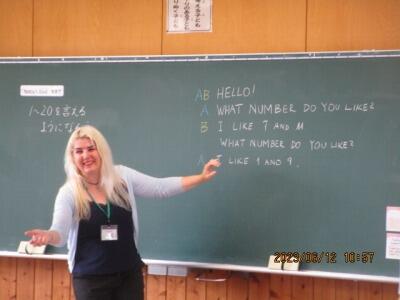 TODAY'S GOAL
1~20を言える
ようになろう
AB HELLO!
A WHAT NUMBER DO YOU LIKE?
B I LIKE 7 AND 11
WHAT NUMBER DO YOU LIKE?
A I LIKE 1 AND 9.
2023/06/12 10:57